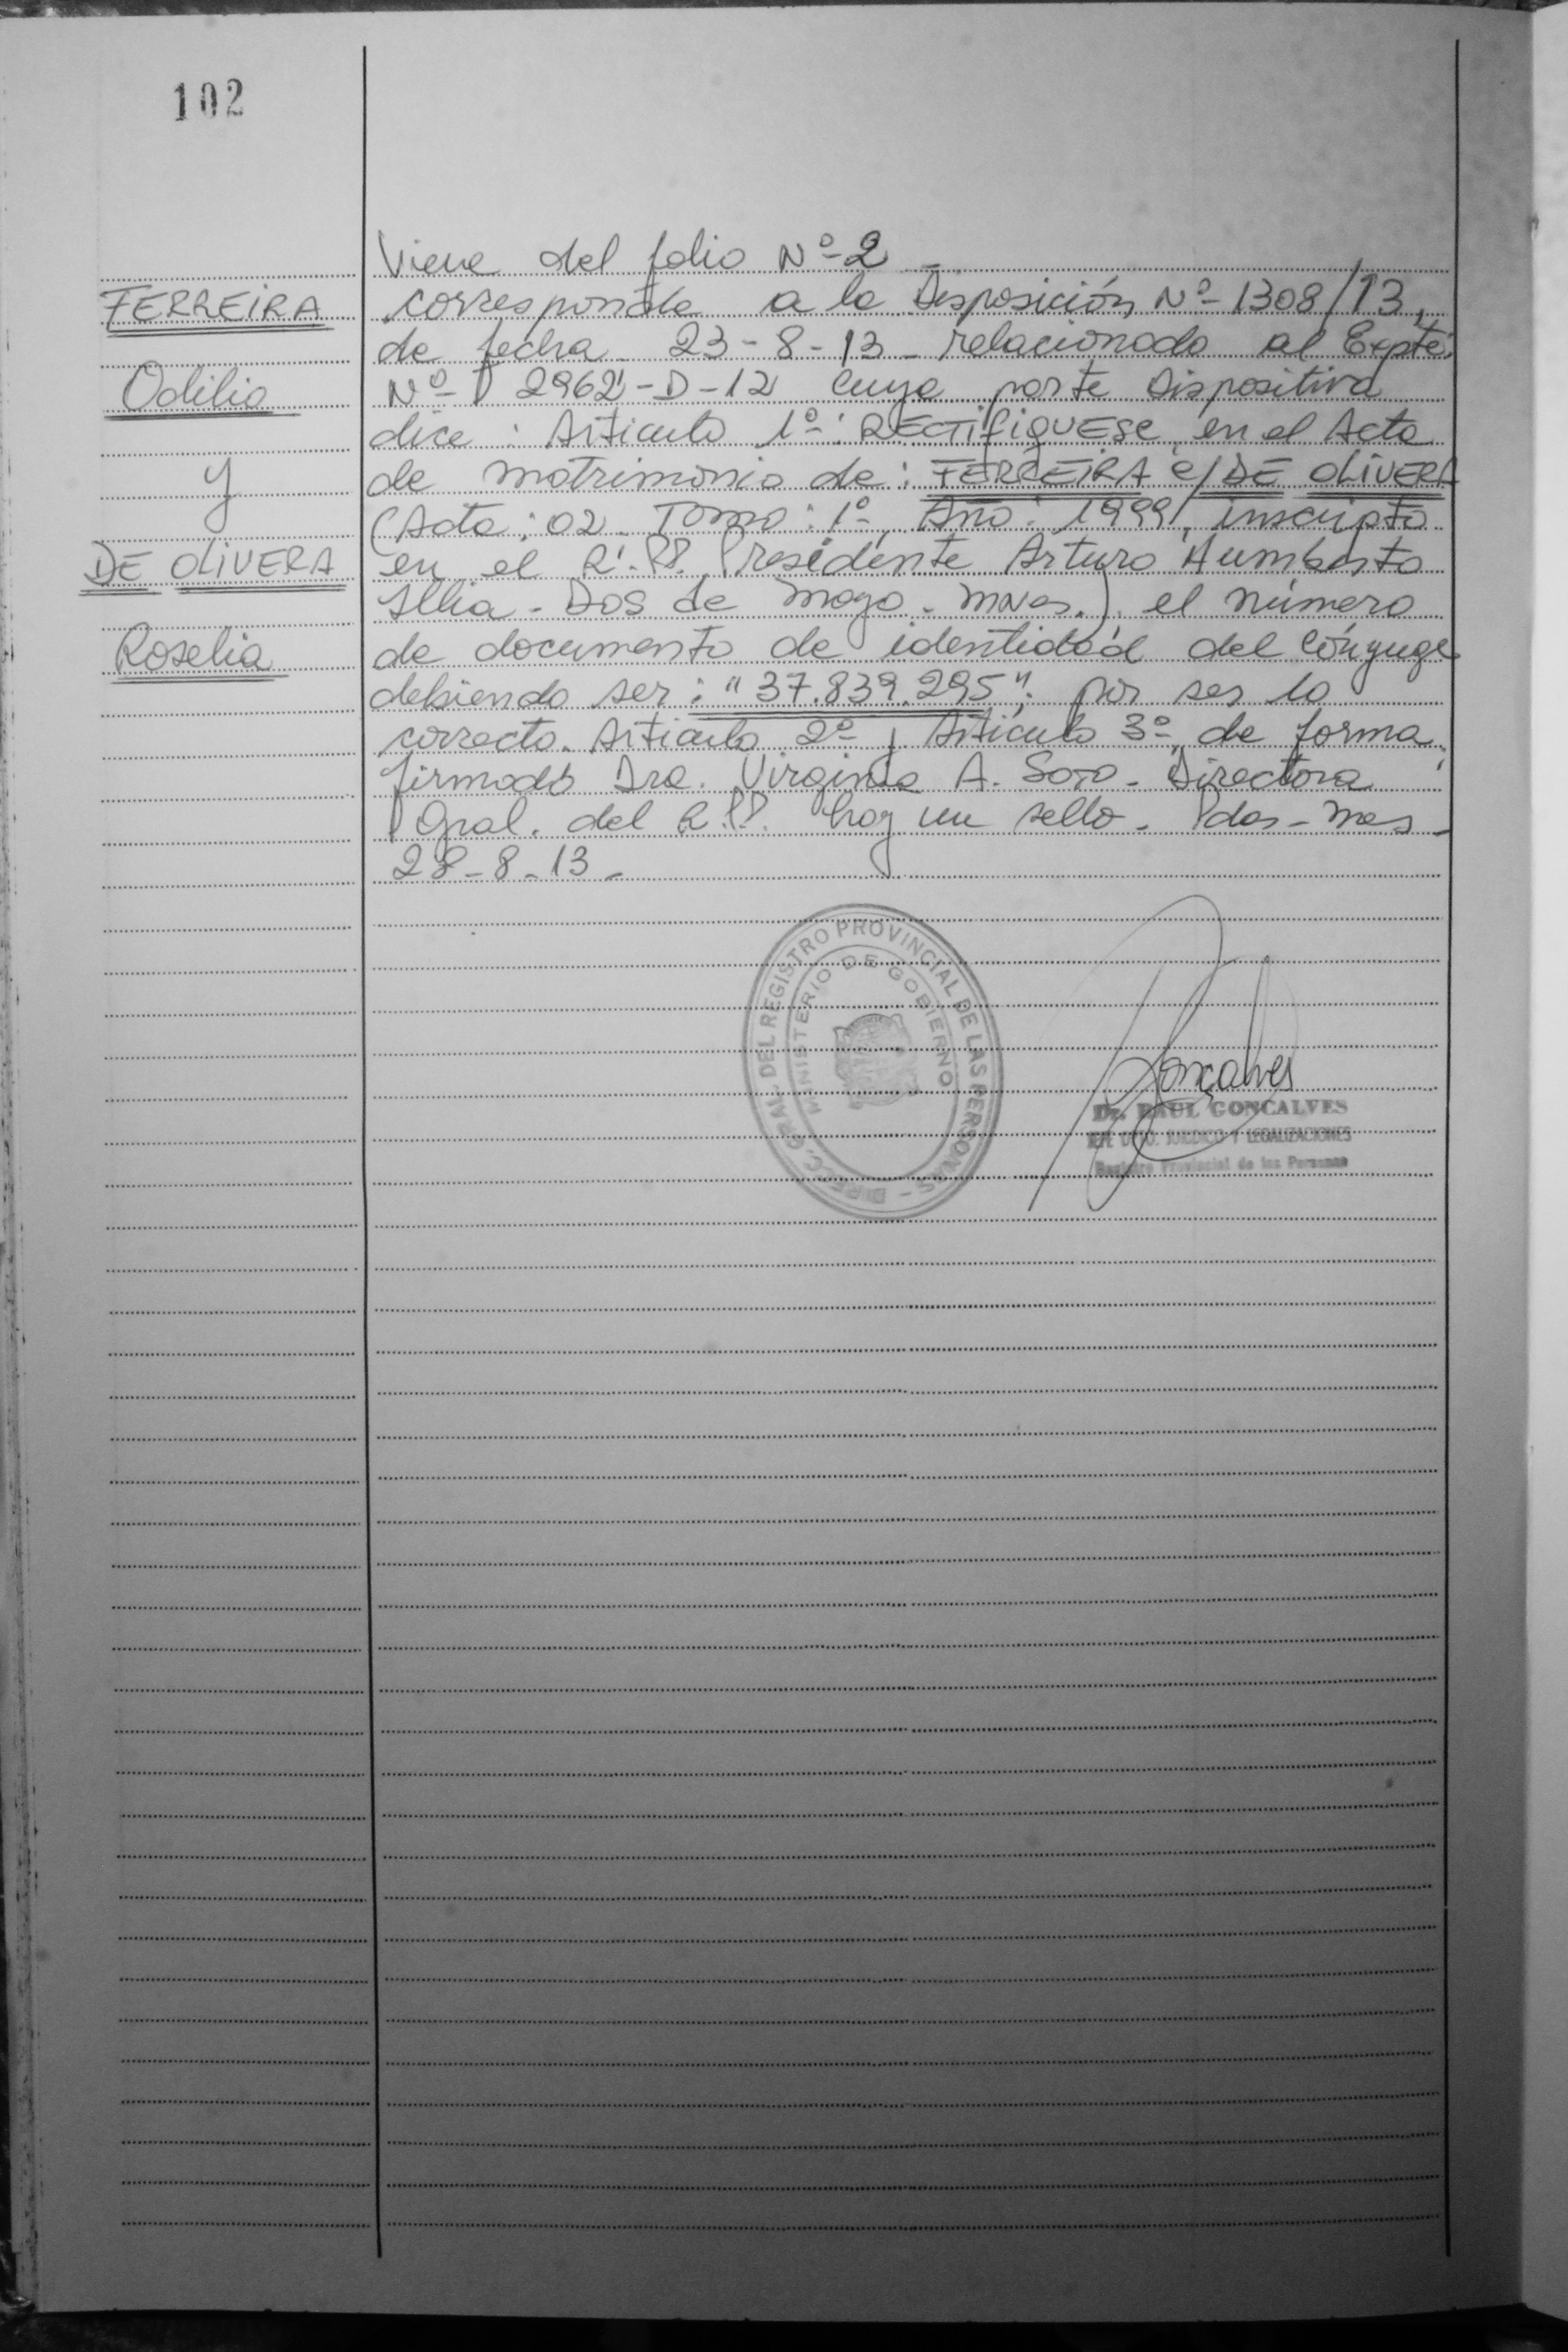 102
FERREIRA
Odilio
y
DE OLIVERA
Roselia
Viene del folio Nº-2 -
corresponde a la Disposición Nº- 1308/13,
de fecha 23-8-13 - relacionado al Expte.
Nº- 2962-D-12 cuya parte Dispositiva
dice : Articulo 1º : RECTIFIQUESE en el Acta
de matrimonio de : FERREIRA c/ DE OLIVERA
(Acta : 02 - Tomo : 1º, Año : 1999, inscripto
en el R.P.P. Presidente Arturo Humberto
Illia - Dos de Mayo - Mnes.) el número
de documento de identidad del cónyuge
debiendo ser : "37.839.295", por ser lo
correcto. Articulo 2º y Articulo 3º de forma,
firmado Dra. Virginia A. Soro - Directora
Gral. del R.P.P. hay un sello - Pdas - Mnes -
28-8-13 -
DIRECC. GRAL. DEL REGISTRO PROVINCIAL DE LAS PERSONAS -
MINISTERIO DE GOBIERNO
Gonçalves
Dr. RAUL GONCALVES
JURIDICO Y LEGALIZACIONES
Registro Provincial de las Personas